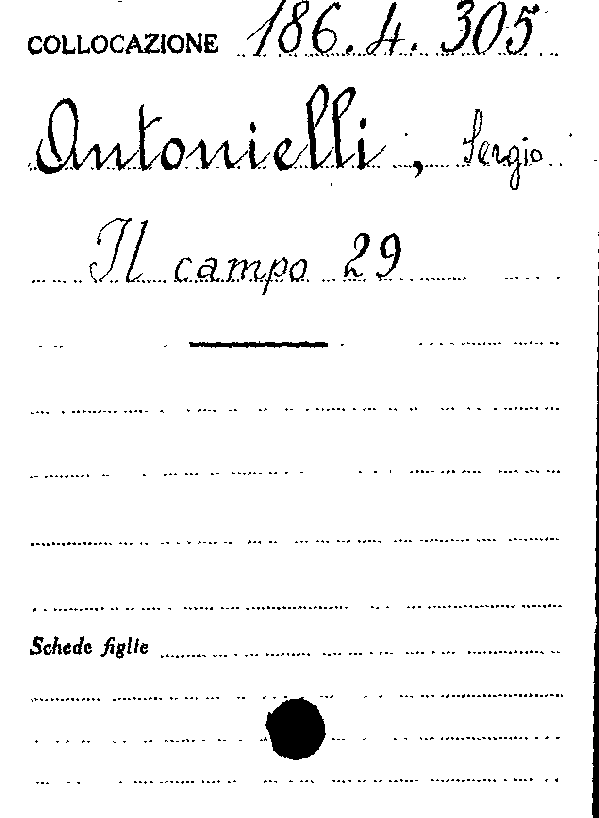 COLLOCAZIONE 186.4.305
Antonielli, Sergio
Il campo 29
Schede figlie